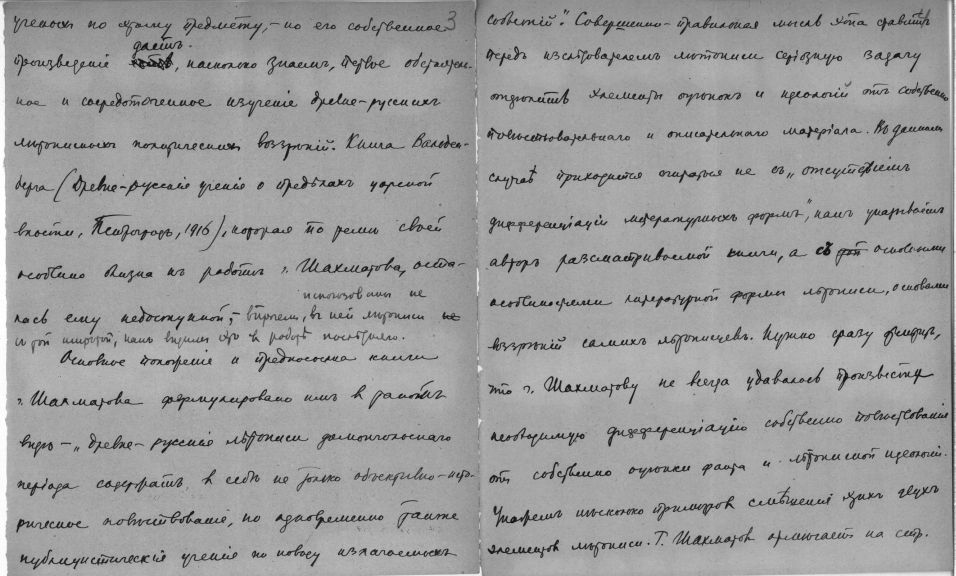 ученыхъ по этому предмету, – но его собственное 3
дастъ.
произведеніе, насколько знаемъ, первое обстоятель-
ное и сосредоточенное изученіе древне-русскихъ
лѣтописныхъ политическихъ воззрѣній. Книга Вальден-
берга (Древне-русскія ученія о предѣлахъ царской
власти, Петроградъ, 1916), которая по темѣ своей
особенно близка къ работѣ г. Шахматова, оста-
использованы не
лась ему недоступной, – впрочемъ, въ ней лѣтописи не
съ той широтой, какъ видимъ это въ работѣ послѣдняго.
Основное положеніе и предпосылка книги
г. Шахматова формулировано имъ въ такомъ
видѣ – „древне-русскія лѣтописи домонгольскаго
періода содержатъ въ себѣ не только объективно-исто-
рическое повѣствованіе, но одновременно также
публицистическія ученія по поводу излагаемыхъ
событій“. Совершенно правильная мысль эта ставитъ
передъ изслѣдователемъ лѣтописи серіозную задачу
отдѣлить элементы оцѣнокъ и идеологій отъ собственно
повѣствовательнаго и описательнаго матеріала. Въ данномъ
случаѣ приходится считаться не съ „отсутствіемъ
дифференціаціи литературныхъ формъ“, какъ указываетъ
авторъ разсматриваемой книги, а съ той основными
особенностями литературной формы лѣтописи, основами
воззрѣній самихъ лѣтописцевъ. Нужно сразу
что г. Шахматову не всегда удавалось произвести
необходимую дифференціацію собственно повѣствованія
отъ собственно оцѣнки факта и лѣтописной идеологіи.
Укажемъ нѣсколько примѣровъ смѣшенія этихъ двухъ
элементовъ лѣтописи. Г. Шахматовъ на стр.